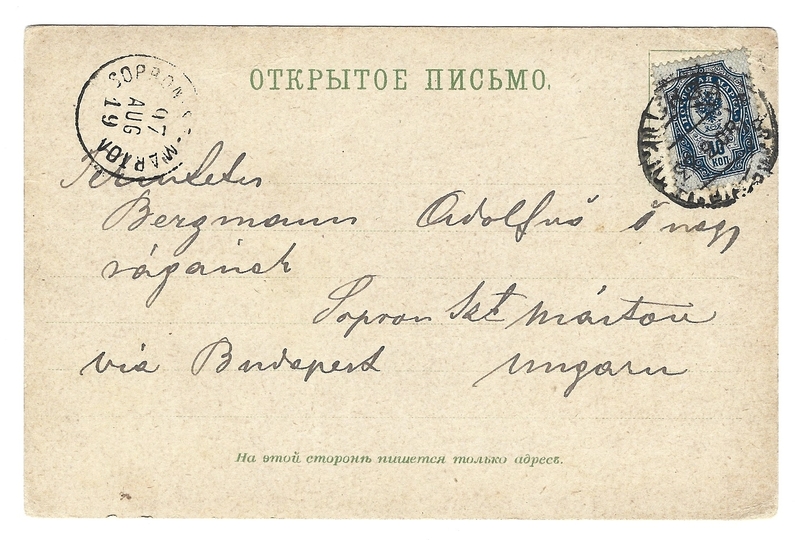 ОТКРЫТОЕ ПИСЬМО.
SOPRON SZ-MARTON
97
AUG
19
10
КОП
Bergmann Adolfné ő nagy
ságának
Sopron Szt Márton
via Budapest Ungarn
На этой сторонѣ пишется только адресъ.